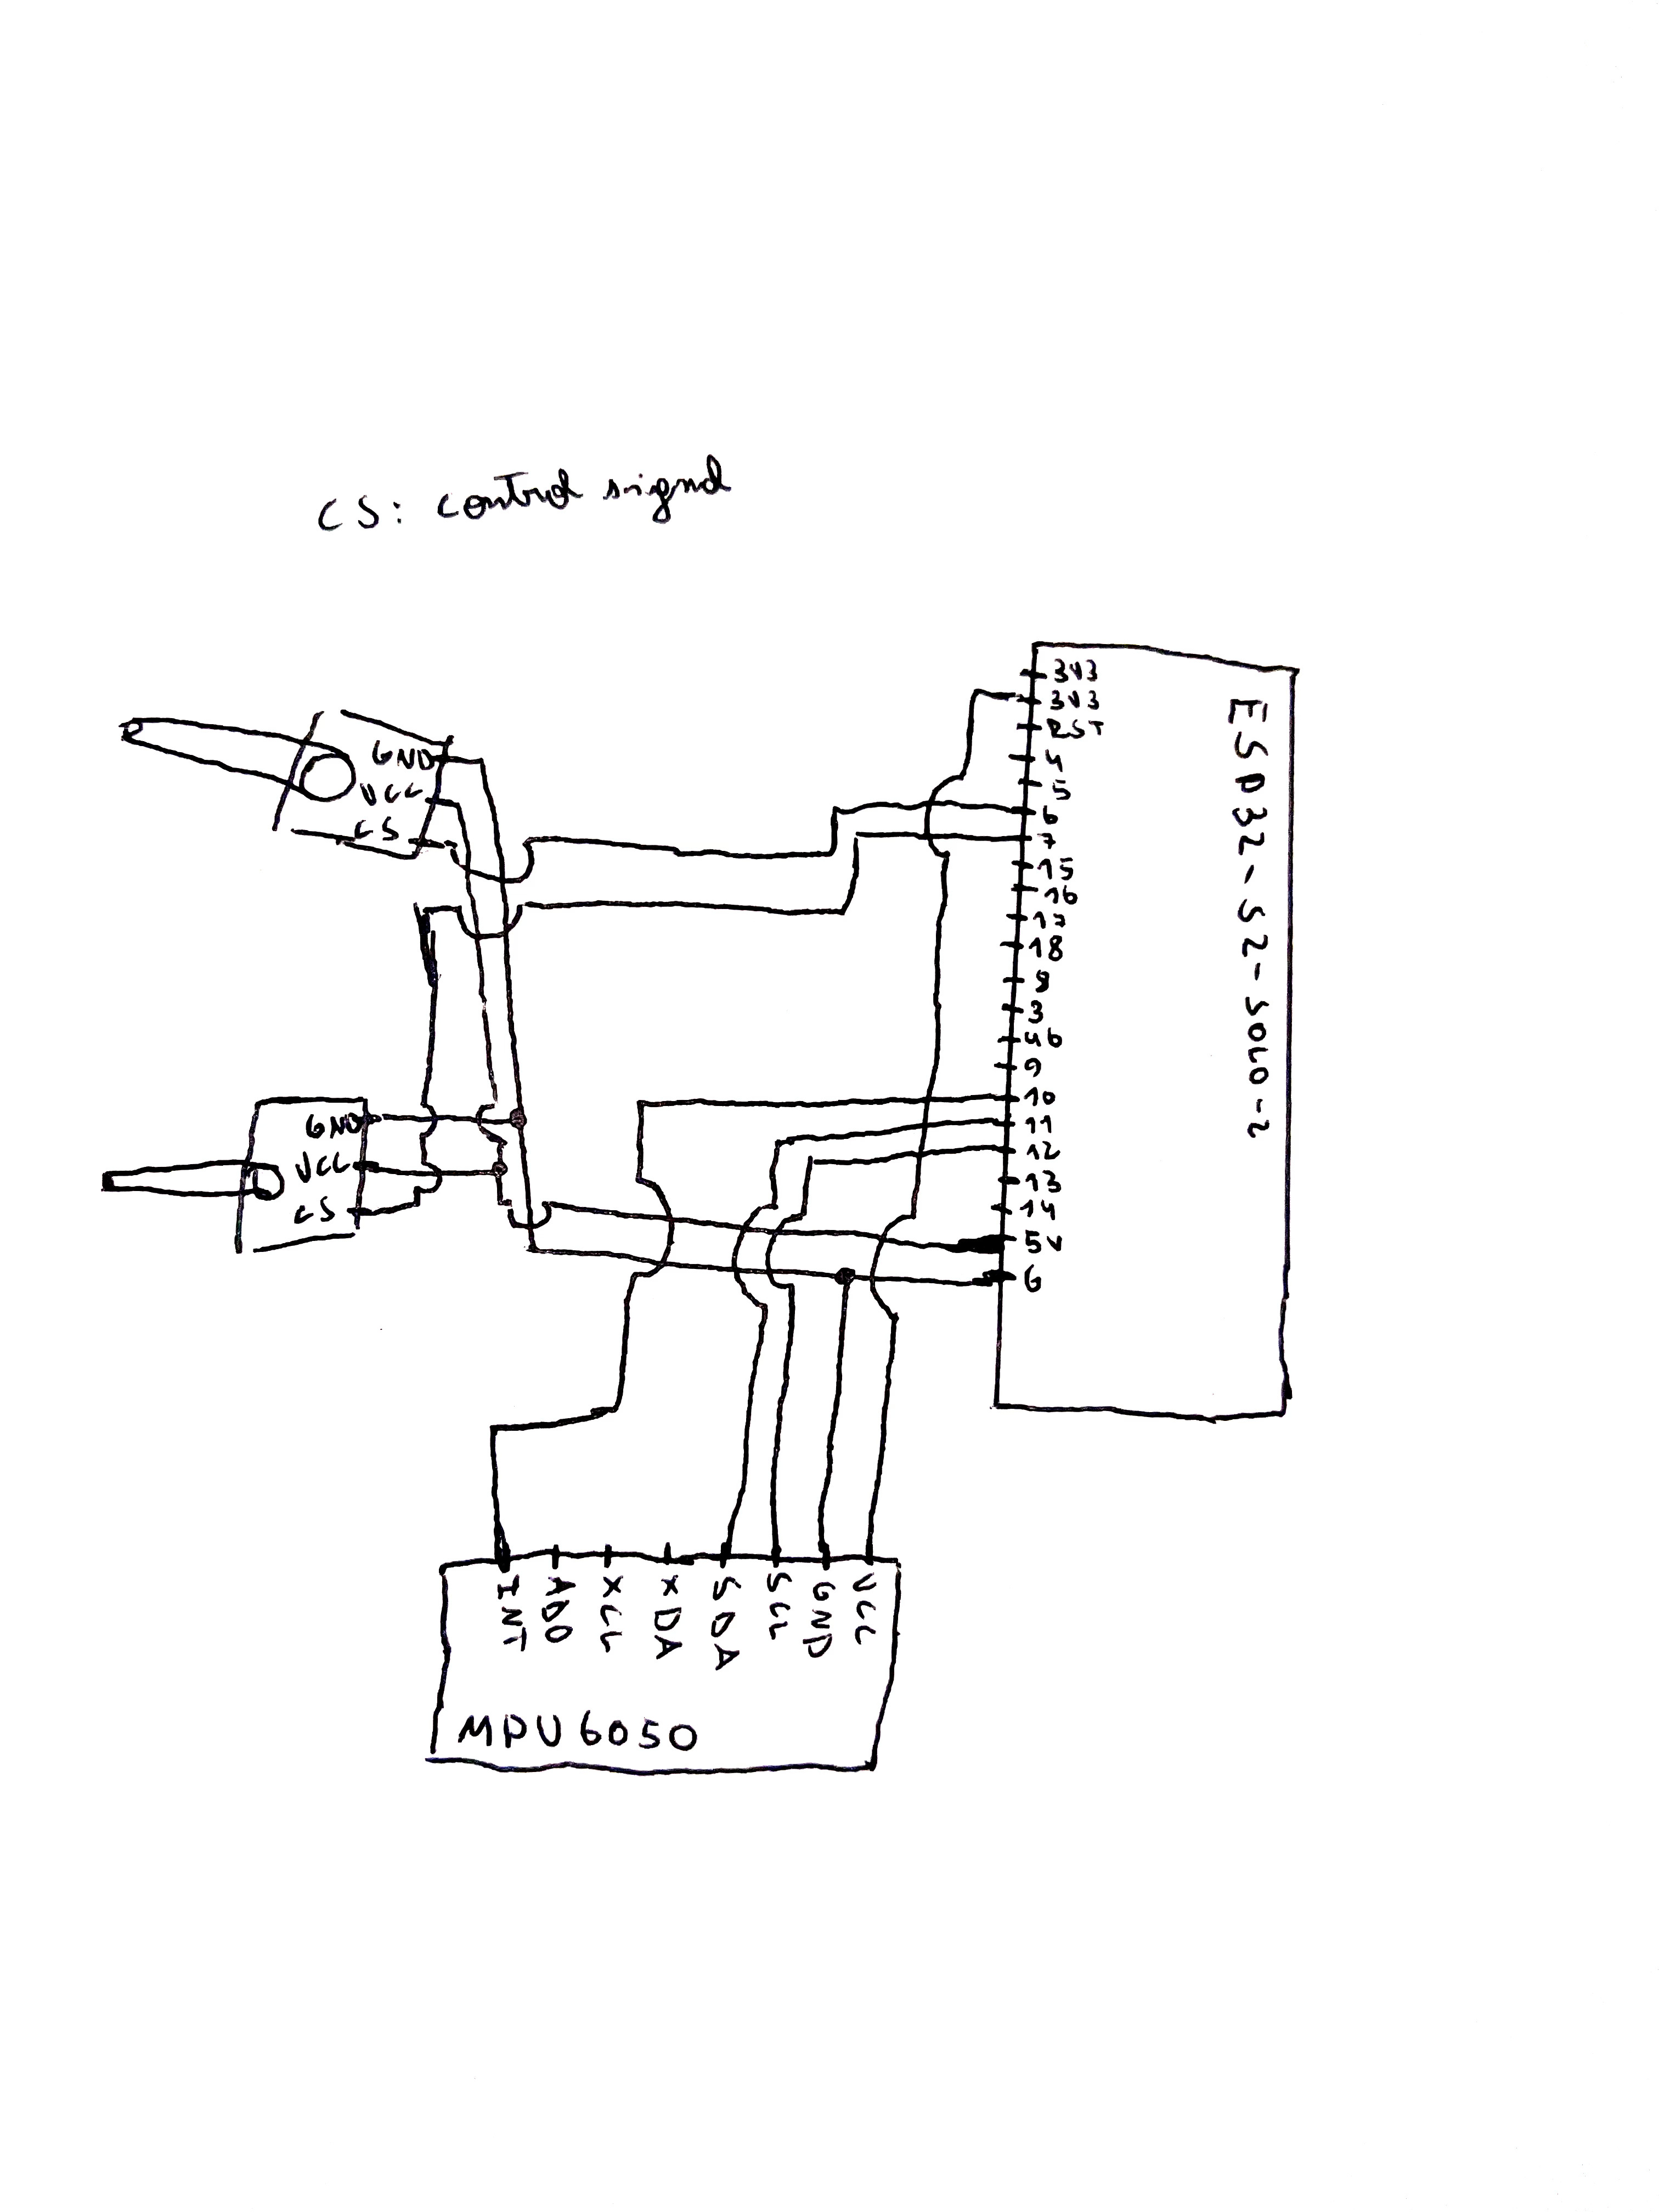 CS: control signal
GND
VCC
CS
GND
VCC
CS
3V3
3V3
RST
4
5
6
7
15
16
17
18
8
3
46
9
10
11
12
13
14
5V
G
ESP32-S2-SOLO-2
INT
ADO
XCL
XDA
SDA
SCL
GND
VCC
MPU6050